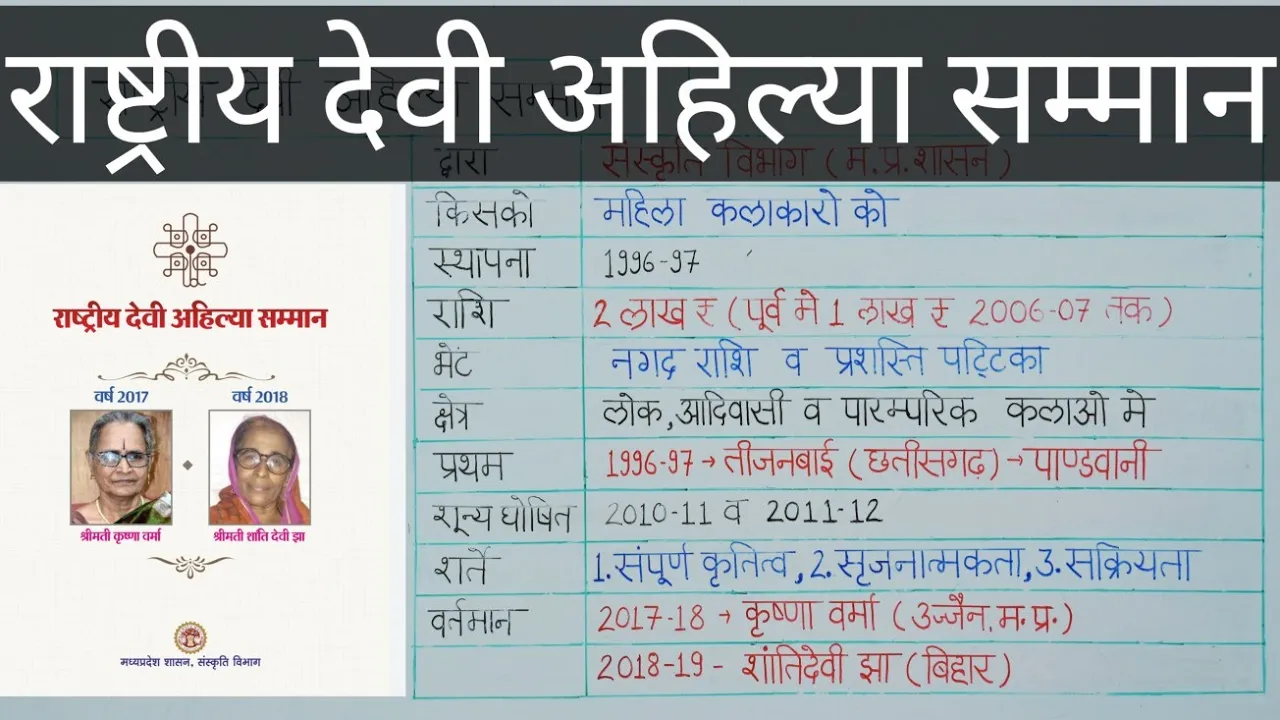 राष्ट्रीय देवी अहिल्या सम्मान
राष्ट्रीय देवी अहिल्या सम्मान
द्वारा संस्कृति विभाग (म.प्र.शासन)
किसको महिला कलाकारो को
स्थापना 1996-97
राशि 2 लाख ₹ (पूर्व मे 1 लाख ₹ 2006-07 तक)
भेंट नगद राशि व प्रशस्ति पट्टिका
क्षेत्र लोक,आदिवासी व पारम्परिक कलाओ मे
प्रथम 1996-97→तीजनबाई (छतीसगढ़)→पाण्डवानी
शून्य घोषित 2010-11 व 2011-12
शर्ते 1.संपूर्ण कृतित्व,2.सृजनात्मकता,3.सक्रियता
वर्तमान 2017-18 → कृष्णा वर्मा (उज्जैन,म.प्र.)
2018-19 - शांतिदेवी झा (बिहार)
राष्ट्रीय देवी अहिल्या सम्मान
वर्ष 2017 वर्ष 2018
श्रीमती कृष्णा वर्मा श्रीमती शांति देवी झा
मध्यप्रदेश शासन, संस्कृति विभाग